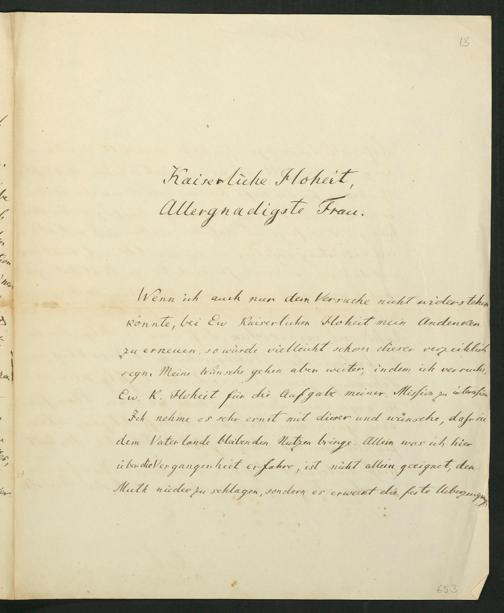 13
Kaiserliche Hoheit,
Allergnadigste Frau.
Wenn ich auch nur dem Versuche nicht widerstehen
könnte, bei Ew Kaiserlichen Hoheit mein Andenken
zu erneuen, so würde vielleicht schon dieser verzeihlich
seyn. Meine Wünsche gehen aber weiter, indem ich versuche,
Ew. K. Hoheit für die Aufgabe meiner Mission zu
Ich nehme es sehr ernst mit dieser und wünsche, dass sie
dem Vaterlande bleibenden Nutzen bringe. Allein was ich hier
über die Vergangenheit erfahre, ist nicht allein geeignet, den
Muth niederzuschlagen, sondern es erweckt die feste Ueberzeugung,
653